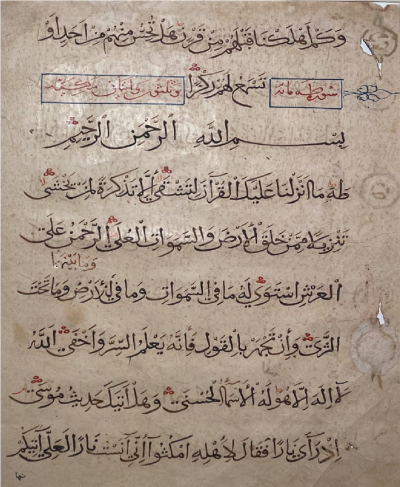 وكم اهلكنا قبلهم من قرن هل تحس منهم من احد او
تسمع لهم ركزا سورة طه مائة وثلثون وثمان
بسم الله الرحمن الرحيم
طه ما انزلنا عليك القرآن لتشقى الا تذكرة لمن يخشى
تنزيلا ممن خلق الارض والسموات العلى الرحمن على
وما بينهما
العرش استوى له ما في السموات وما في الارض وما تحت
الثرى وان تجهر بالقول فانه يعلم السر واخفى الله
لا اله الا هو له الاسماء الحسنى وهل اتيك حديث موسى
اذ رآى نارا فقال لاهله امكثوا انى آنست نارا لعلى آتيكم
منها